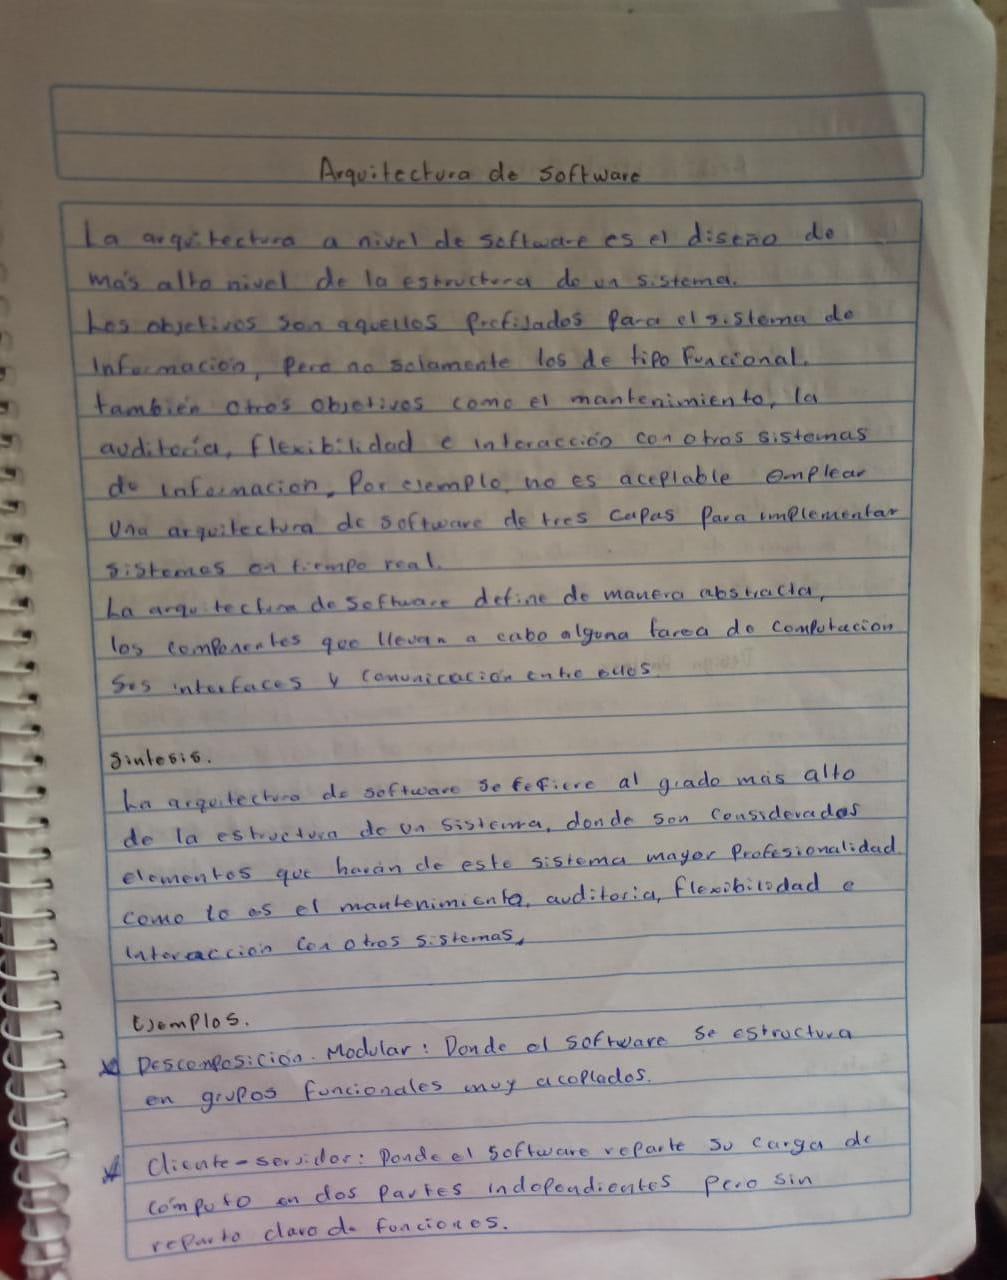 Arquitectura de software
La arquitectura a nivel de software es el diseño de
más alto nivel de la estructura de un sistema.
Los objetivos son aquellos prefijados para el sistema de
información, pero no solamente los de tipo Funcional.
también otros objetivos como el mantenimiento, la
auditoría, flexibilidad e interacción con otros sistemas
de información. Por ejemplo, no es aceptable emplear
una arquitectura de software de tres capas para implementar
sistemas en tiempo real.
La arquitectura de software define de manera abstracta,
los componentes que llevan a cabo alguna tarea de computacion
sus interfaces y comunicación entre ellos.
Sintesis.
La arquitectura de software se refiere al grado más alto
de la estructura de un sistema, donde son considerados
elementos que harán de este sistema mayor profesionalidad
como lo es el mantenimiento, auditoria, flexibilidad e
interaccion con otros sistemas.
Ejemplos.
Descomposición. Modular: Donde el software se estructura
en grupos funcionales muy acoplados.
Cliente-servidor: Donde el software reparte su carga de
cómputo en dos partes independientes pero sin
reparto claro de funciones.